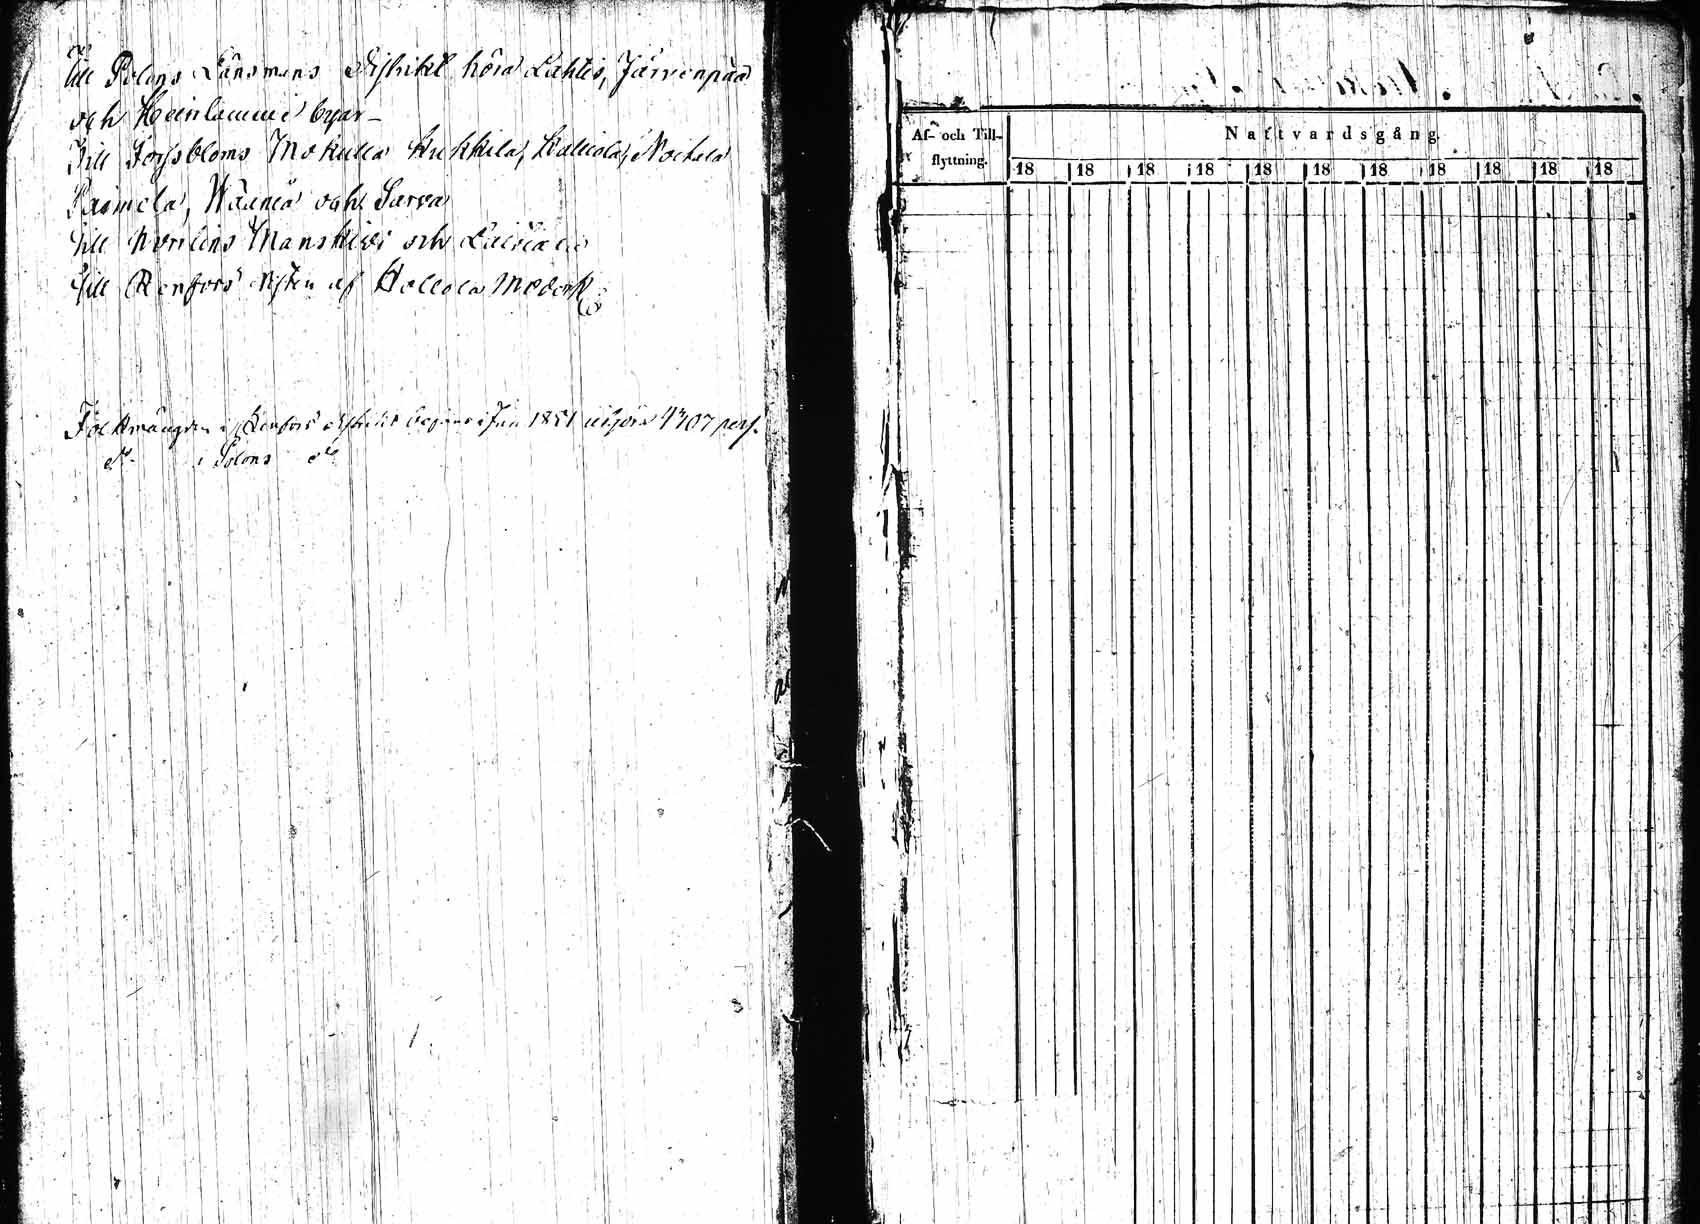 Till Polons Länsmans distrikt höra Lahtis, Järvenpää
och Heinlammi byar –
Till Forssbloms Mokulla Kukkila, Kalliola, Noitala
Pasinela, Wäänia och Sarva
Till Norlins Manskivi och Laitiala
Till Renfors resten af Hollola Moderk
Folkmängden i Renfors distrikt början i Jan 1851 utgöra 4707 pers.
do i Polons do
Af- och Till-
flyttning.
Nattvardsgång.
18 18 18 18 18 18 18 18 18 18 18